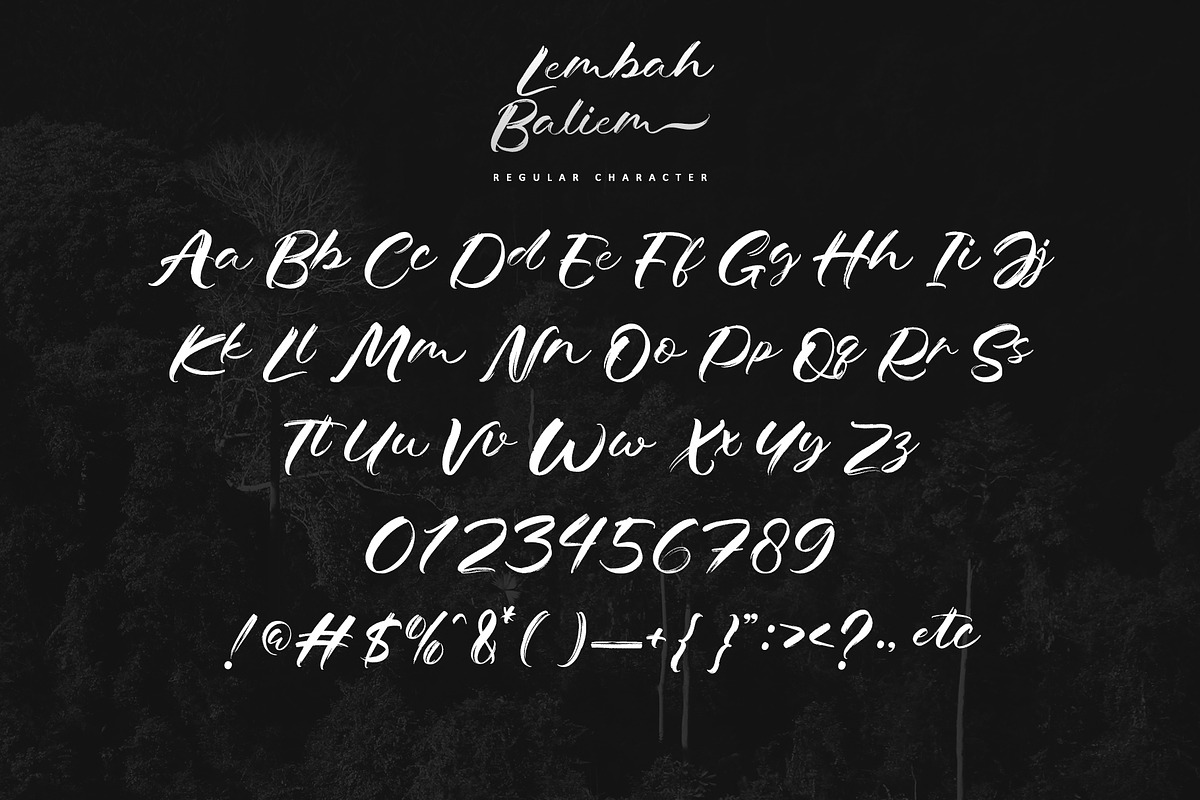 Lembah
Baliem
REGULAR CHARACTER
Aa Bb Cc Dd Ee Ff Gg Hh Ii Jj
Kk Ll Mm Nn Oo Pp Qq Rr Ss
Tt Uu Vv Ww Xx Yy Zz
0123456789
!@#$%^&*()—+{}":><?., etc